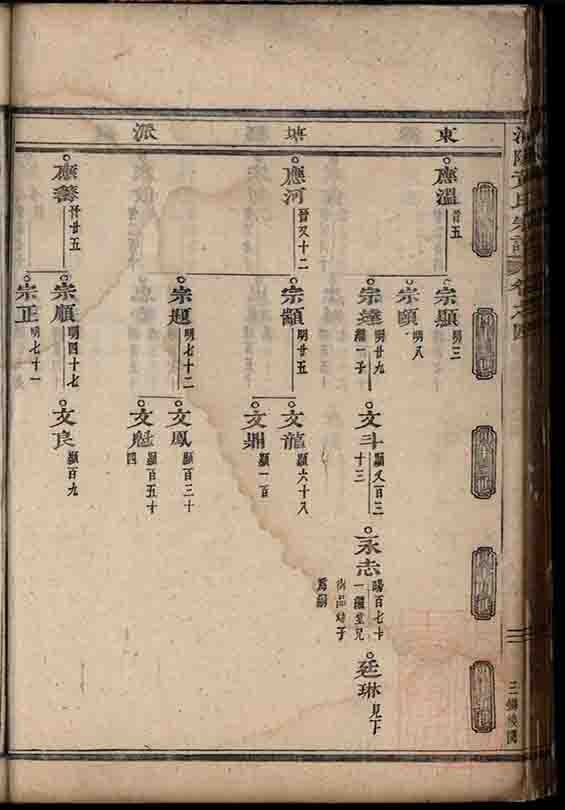 東塘派
應溫
晉五
宗顯
明三
宗頤
明八
宗達
明廿九
繼一子
文斗
顯又百三十三
永志
陽百七十一繼堂兄
幼子爲嗣
廷琳
見下
應河
晉又十二
宗顓
明廿五
文龍
顯六十八
文鼎
顯一百
宗題
明七十二
文鳳
顯百三十
文魁
顯百五十四
應

晉廿五
宗順
明四十七
文良
顯百九
宗正
明七十一
黃氏宗譜
卷之四